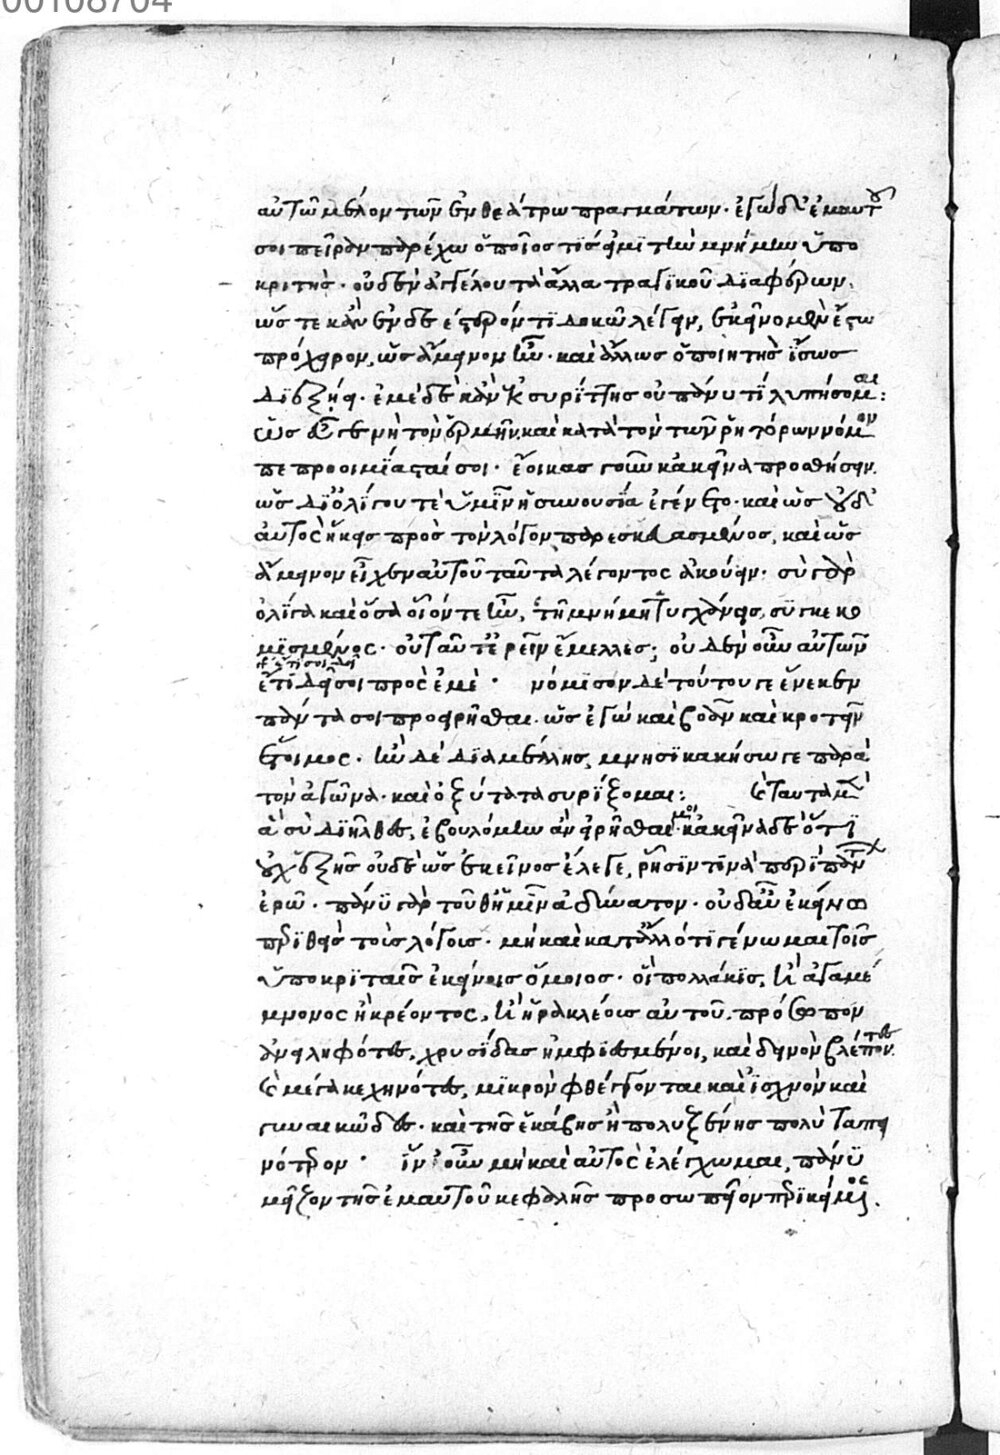 00108704
αὐτῶ μέλον τῶν ἐν θεάτρω πραγμάτων· ἐγὼ δὲ ἐμαυτοῦ
σοι πεῖραν παρέχω ὁποῖός τίς εἰμι τὴν μνήμην ὑπο
κριτὴς· οὐδὲν ἀγγέλου τὰ ἄλλα τραγικοῦ διαφέρων.
ὥς τε κἂν ἐν δεέστερόν τι δοκῶ λέγειν, ἐκεῖνο μὲν ἔστω
πρόχειρον, ὡς ἄμεινον ἦν· καὶ ἄλλως ὁ ποιητὴς ἴσως
διεξήει· ἐμὲ δὲ κἂν ἐκσυρίττῃς οὐ πάνυ τι λυπήσομαι:
ὡς εὖ γε νὴ τὸν ἑρμῆν, καὶ κατὰ τὸν τῶν ῥητόρων νόμον
πεπροοιμίασταί σοι· ἔοικας γοῦν κἀκεῖνα προσθήσειν.
ὡς δι ὀλίγου τὲ ὑμῖν ἡ συνουσία ἐγένετο· καὶ ὡς οὐδὲ
αὐτὸς ἧκες πρὸς τὸν λόγον παρεσκευασμένος, καὶ ὡς
ἄμεινον εἶχεν αὐτοῦ ταῦτα λέγοντος ἀκούειν· σὺ γὰρ
ὀλίγα καὶ ὅσα οἷόν τε ἦν, τῇ μνήμῃ τυγχάνεις, συγκεκο
μισμένος· οὐ ταῦτ ἐρεῖν ἔμελλες; οὐδὲν οὖν αὐτῶν
ἔτι δεῖ σοι πρὸς ἐμὲ· νόμισον δὲ τούτου γε ἕνεκεν
πάντα σοι προειρῆσθαι· ὡς ἐγὼ καὶ βοᾶν καὶ κροτεῖν
ἕτοιμος· ἢν δὲ διαμέλλης, μνησικακήσω γε παρὰ
τὸν ἀγῶνα· καὶ ὀξύτατα συρίξομαι: καὶ ταῦτα μὲν
ἃ σὺ διῆλθες, ἐβουλόμην ἂν εἰρῆσθαί μοι· κἀκεῖνα δὲ ὅτι
οὐχ ἑξῆς οὐδὲ ὡς ἐκεῖνος ἔλεγε, ῥῆσίν τινα περὶ πάντων
ἐρῶ· πάνυ γὰρ τοῦθ ἡμῖν ἀδύνατον· οὐδ αὖ ἐκείνω
περιθεὶς τοὺς λόγους· μὴ καὶ κατ ἄλλό τι γένωμαι τοῖς
ὑποκριταῖς ἐκείνοις ὅμοιος· οἳ πολλάκις, ἢ ἀγαμέ
μνονος ἢ κρέοντος, ἢ ἡρακλέους αὐτοῦ, πρόσωπον
ἀνειληφότες, χρυσίδας ἠμφιεσμένοι, καὶ δεινὸν βλέποντες
καὶ μέγα κεχηνότες, μικρὸν φθέγγονται καὶ ἰσχνὸν καὶ
γυναικῶδες· καὶ τῆς ἑκάβης ἢ πολυξένης πολὺ ταπει
νότερον· ἵν οὖν μὴ καὶ αὐτὸς ἐλέγχωμαι, πάνυ
μεῖζον τῆς ἐμαυτοῦ κεφαλῆς προσωπεῖον περικείμενος.